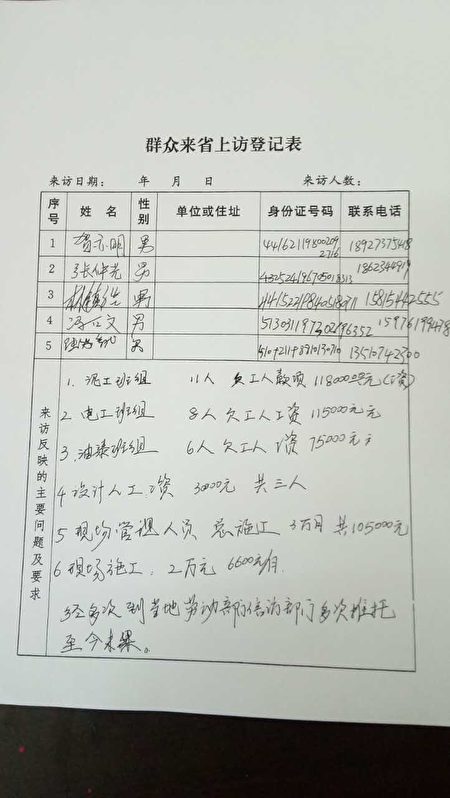 群众来省上访登记表
来访日期： 年 月 日 来访人数：
序号 姓 名 性别 单位或住址 身份证号码 联系电话
1 贺元明 男 18927375418
2 张仲光 男
3 男 15815442555
4 冯石文 男 513031197302196352 15976199478
5 男 13510742500
来访反映的主要问题及要求
1. 泥工班组 11人 欠工人款项 118000元(工资)
2. 电工班组 8人 欠工人工资 115000元
3. 油漆班组 6人 欠工人工资 75000元
4 设计人工资 30000元 共三人
5 现场管理人员 总施工 3万月 共105000元
6 现场施工: 2万元 6600元/月.
经多次到当地劳动部门信访部门多次推托
至今未果。